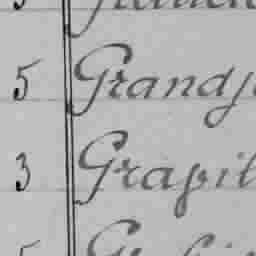 5 Grandj
3 Grapil